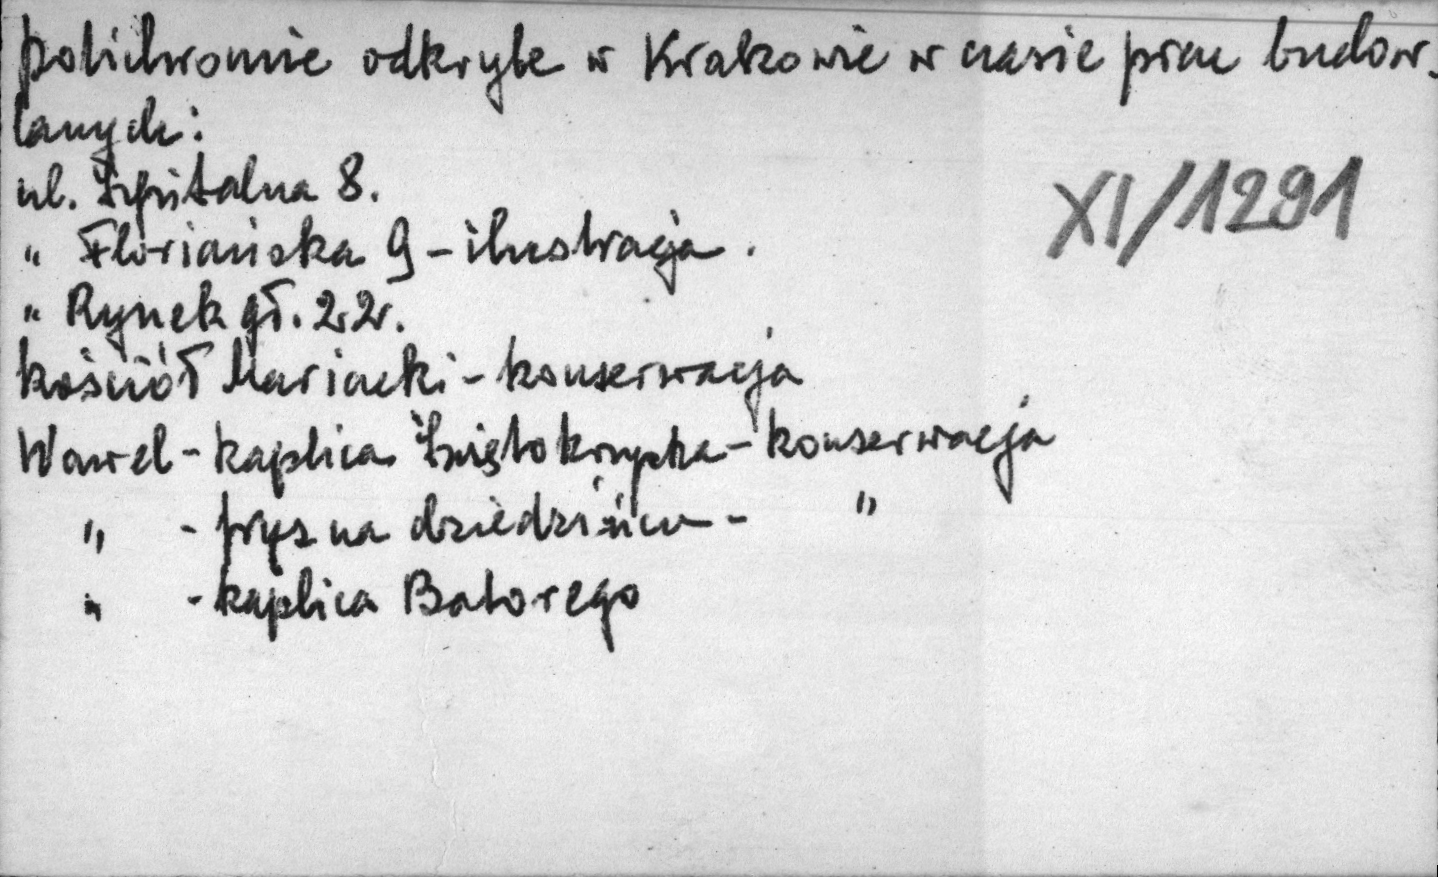 polichromie odkryte w Krakowie w czasie prac budow-
lanych:
ul. Szpitalna 8.
XI/1291
" Floriańska 9 - ilustracja.
" Rynek gł. 22.
kościół Mariacki - konserwacja
Wawel - kaplica Świętokrzyska - konserwacja
" - fryz na dziedzińcu - "
" - kaplica Batorego